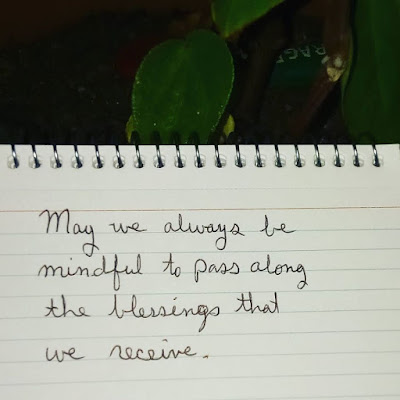 May we always be
mindful to pass along
the blessings that
we receive.